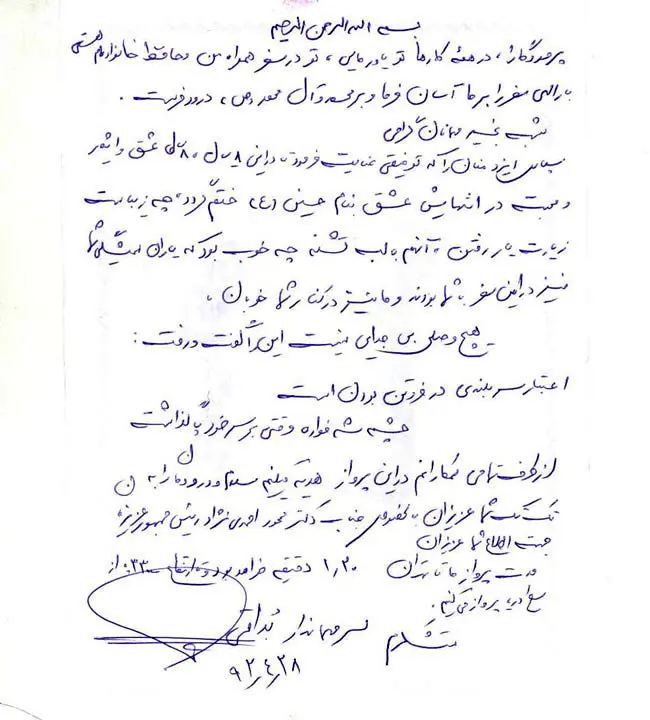 بسم الله الرحمن الرحیم
پروردگارا، در همهٔ کارها تو یاور مایی، تو در سفر همراه من و حافظ خانواده‌ام هستی
بارالهی سفر را بر ما آسان فرما و بر محمد و آل محمد (ص) درود فرست.
شب بخیر مهمانان گرامی
سپاس ایزد منان را که توفیقی عنایت فرمود تا در این ۸ سال، ۸ سال عشق و ایثار
و محبت در انتهایش عشق بنام حسین (ع) ختم گردد، چه زیباست
زیارت یار رفتن، آنهم با لب تشنه چه خوب بود که یاران همیشگی شما
نیز در این سفر با شما بودند و ما نیز در کنار شما خوبان،
هیچ وصلی بی جدایی نیست این را گفت و رفت:
اعتبار سربلندی در فروتن بودن است
چشمه شد فواره وقتی بر سر خود پا گذاشت
از طرف تمامی همکارانم در این پرواز هدیه میکنم سلام و درودمان را به
تک تک شما عزیزان بخصوص جناب دکتر محمود احمدی نژاد رئیس جمهور عزیز
جهت اطلاع شما عزیزان
مدت پرواز ما تا تهران ۱٫۳۰ دقیقه خواهد بود و ارتفاع ۳۳۰۰۰ از
سطح دریا پرواز می کنیم.
متشکرم سرمهماندار
۹۲٫۴٫۲۸